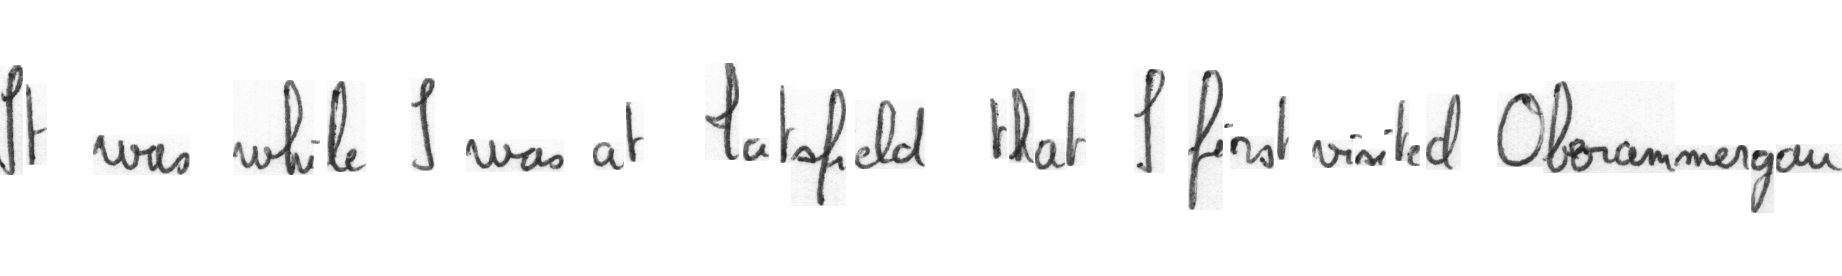 It was while I was at Tatsfield that I first visited Oberammergau